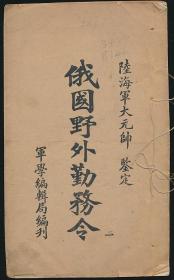 陸海軍大元帥 鑒定
俄國野外勤務令 二
軍學編輯局編刊